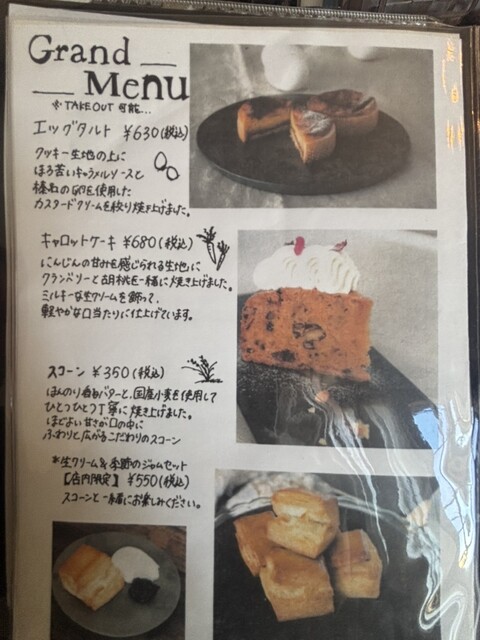 Grand
Menu
※TAKEOUT 可能...
エッグタルト ¥630(税込)
クッキー生地の上に
ほろ苦いキャラメルソースと
榛名の卵を使用した
カスタードクリームを絞り焼き上げました。
キャロットケーキ ¥680(税込)
にんじんの甘みを感じられる生地に
クランベリーと胡桃を一緒に焼き上げました。
ミルキーな生クリームを飾って、
軽やかな口当たりに仕上げています。
スコーン ¥350(税込)
ほんのり香るバターと、国産小麦を使用して
ひとつひとつ丁寧に焼き上げました。
ほどよい甘さが口の中に
ふわりと広がるこだわりのスコーン
*生クリーム&季節のジャムセット
【店内限定】 ¥550(税込)
スコーンと一緒にお楽しみください。